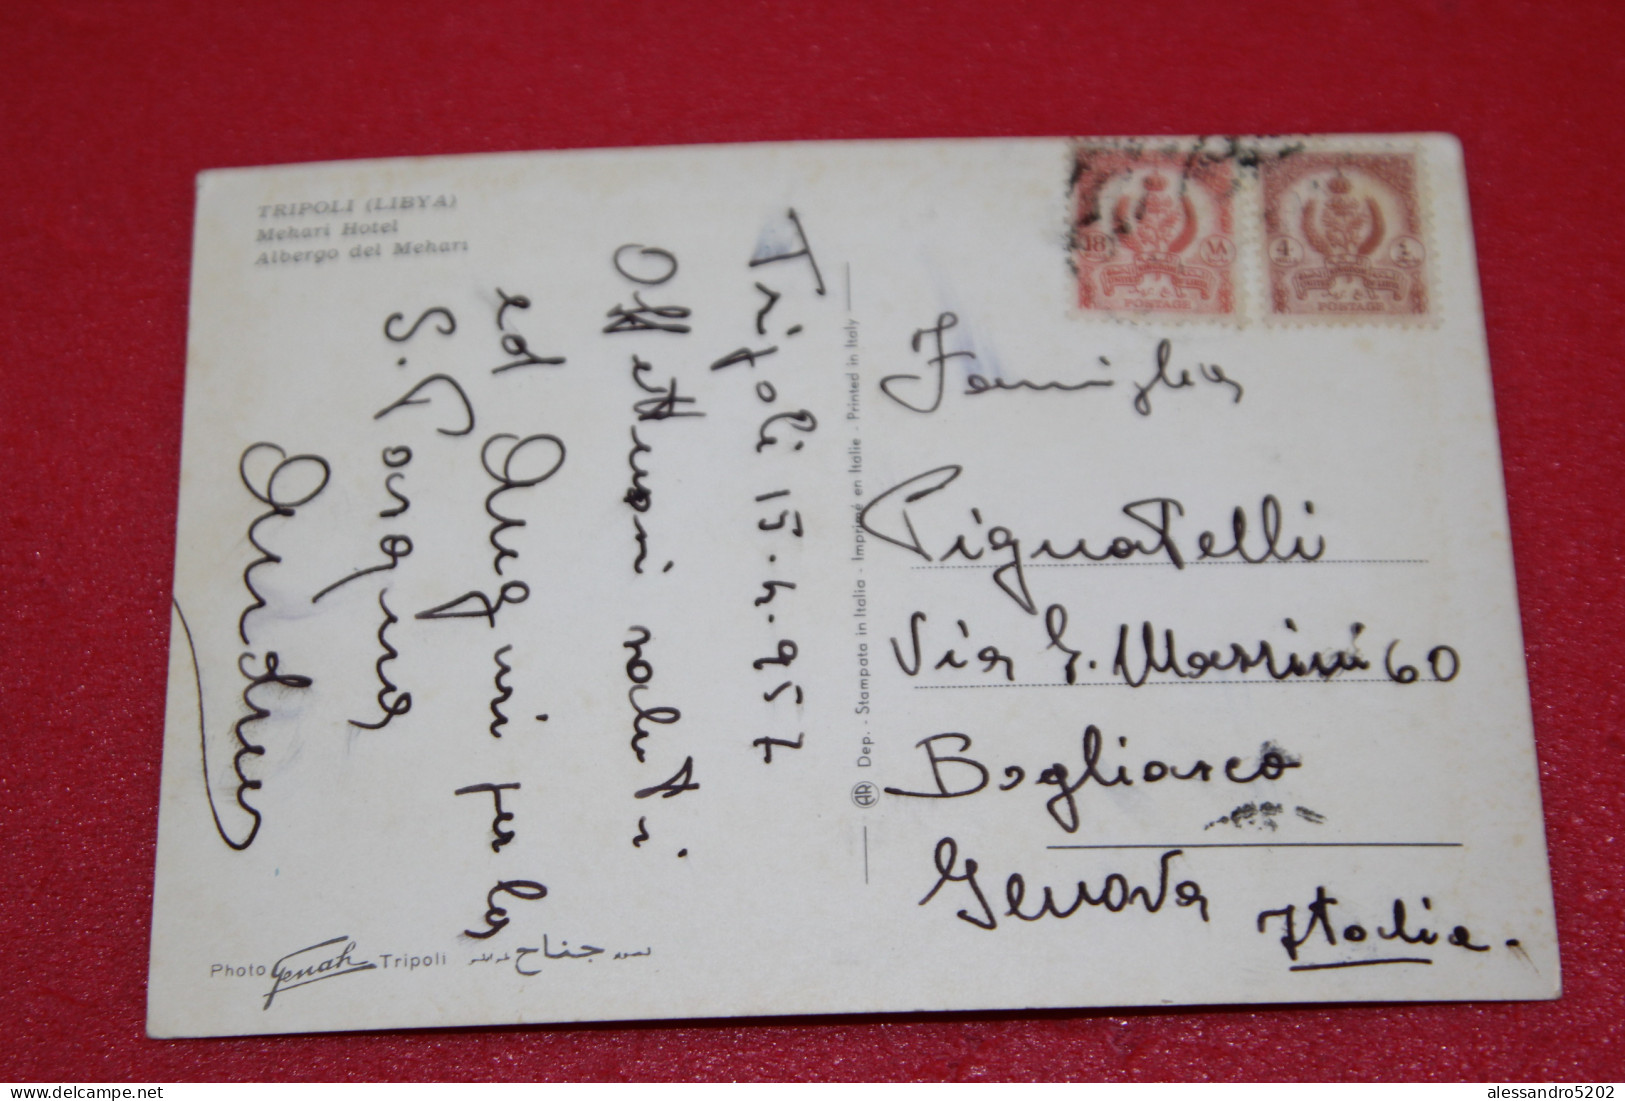 TRIPOLI (LIBYA)
Mehari Hotel
Albergo del Mehari
Tripoli 15.4.957
Affettuosi saluti
ed Auguri per la
S. Pasqua
Photo Genah Tripoli
جناح
AR Dep. - Stampata in Italia - Imprimé en Italie - Printed in Italy
18
POSTAGE
4
POSTAGE
Famiglia
Pignatelli
Via G. Mazzini 60
Bogliasco
Genova
Italia.
delcampe.net
alessandro5202